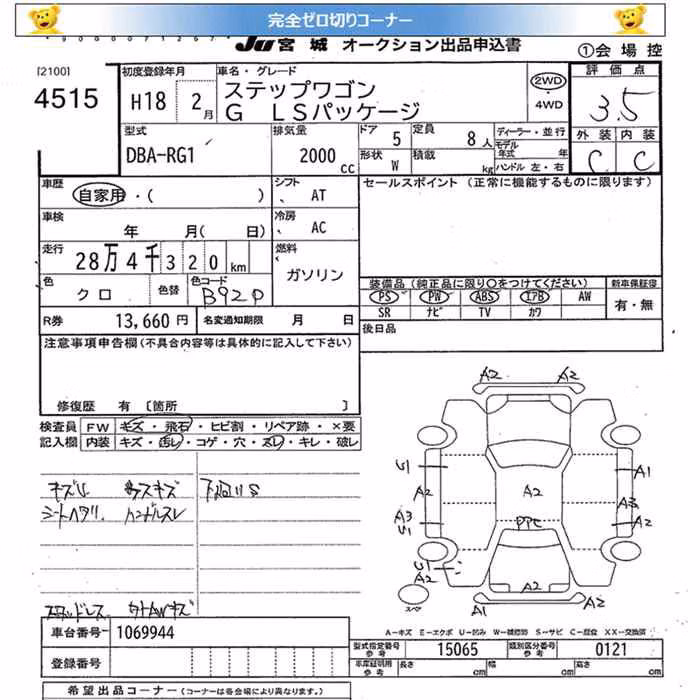 完全ゼロ切りコーナー
JU宮城 オークション出品申込書
①会場控
[2100]
4515
初度登録年月
H18 2月
車名・グレード
ステップワゴン
G LSパッケージ
2WD
・
4WD
評価点
3.5
外装 内装
C C
型式
DBA-RG1
排気量
2000 cc
ドア 5
定員 8人
形状 W
積載 kg
ディーラー・並行
モデル年式 年
ハンドル 左・右
車歴
自家用・( )
シフト
AT
セールスポイント (正常に機能するものに限ります)
車検
年 月( 日)
冷房
AC
走行
28万4千320km
燃料
ガソリン
色
クロ
色替
色コード
B92P
装備品(純正品に限り○をつけてください)
新車保証書
PS PW ABS エアB AW
SR ナビ TV カワ
有・無
R券 13,660円
名変通知期限 月 日
後日品
注意事項申告欄(不具合内容等は具体的に記入して下さい)
修復歴 有 〔箇所 〕
検査員 FW キズ・飛石・ヒビ割・リペア跡・×要
記入欄 内装 キズ・汚レ・コゲ・穴・スレ・キレ・破レ
キズU
シートヘタリ ハンドルスレ
下廻りS
スタッドレス
A2 A2
U1
A2
A3
U1
U1
A2
A2
PPC
A2
A1
A3
A2
A1 A2
スペア
A-キズ E-エクボ U-凹み W-補修跡 S-サビ C-腐食 XX-交換済
車台番号 1069944
登録番号
型式指定番号 参考 15065
類別区分番号 参考 0121
車庫証明用 参考 長さ cm 幅 cm 高さ cm
希望出品コーナー(コーナーは各会場により異なります。)